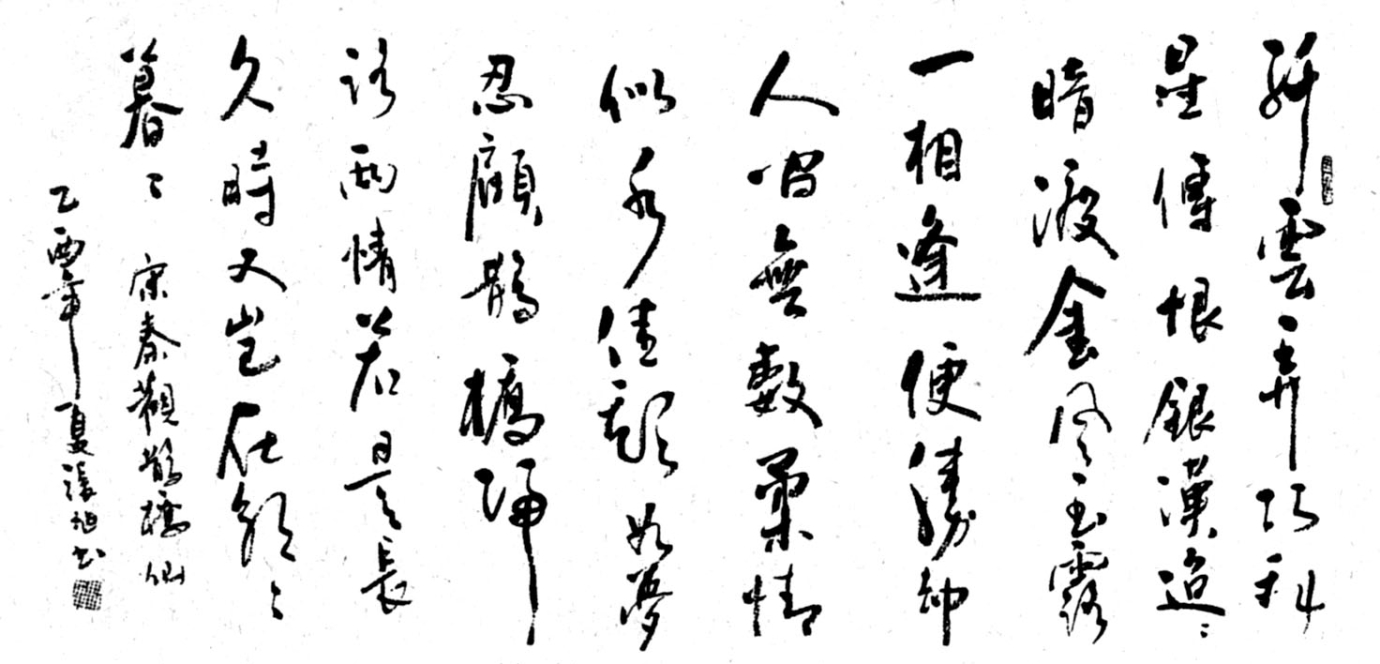 纤雲弄巧飛
星傳恨銀漢迢〻
暗渡金風玉露
一相逢便勝却
人間無數柔情
似水佳期如夢
忍顧鵲橋歸
路兩情若是長
久時又豈在朝〻
暮〻 宋秦觀鵲橋仙
乙酉年夏張旭书